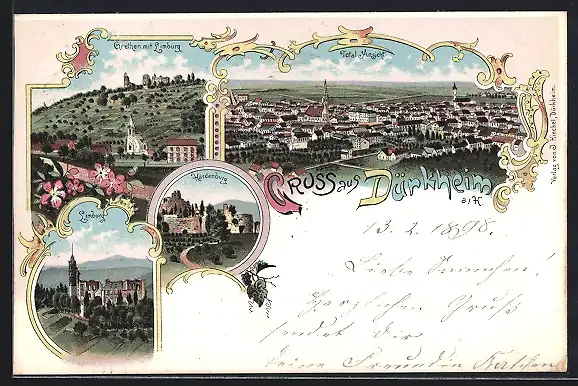 Grethen mit Limburg
Total-Ansicht
Hardenburg
Limburg
GRUSS aus Dürkheim
a/H
Verlag von J. Dürkheim.
13. 2. 1898.
Liebe !
Herzlichen Gruß
sendet dir
Deine Freundin Kätchen